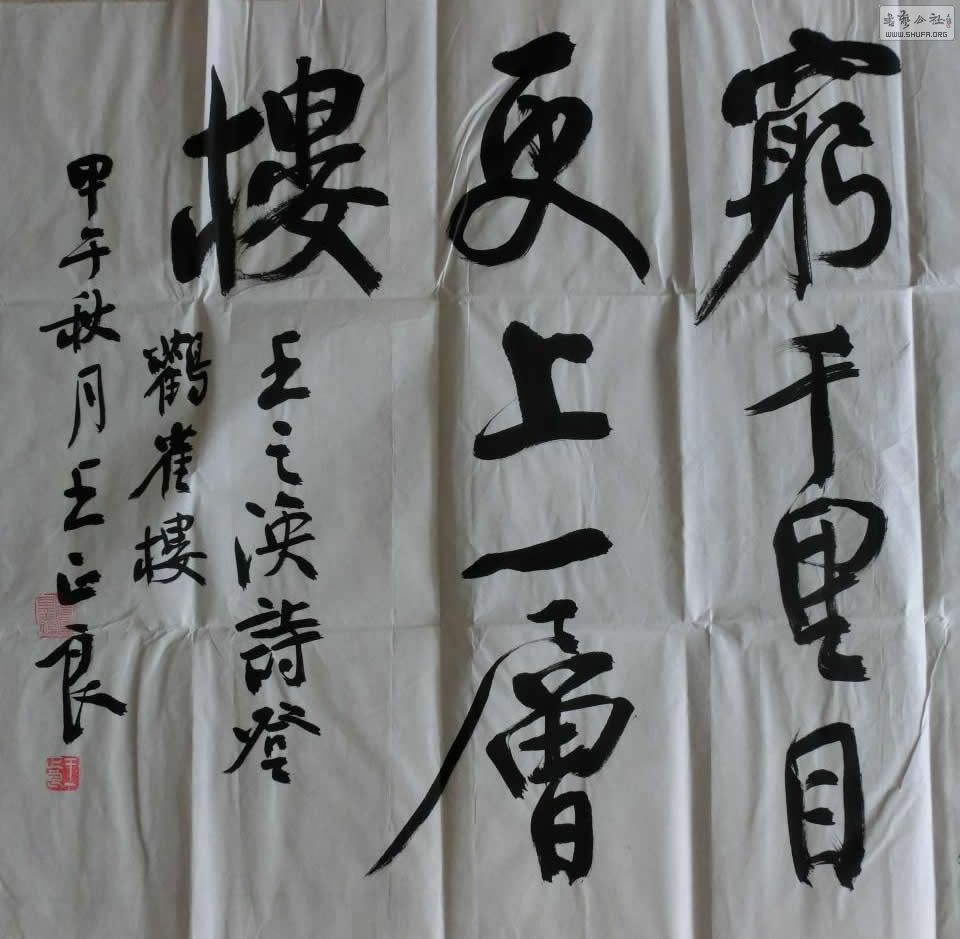 窮千里目
更上一層
樓
王之渙詩登
鸛雀樓
甲午秋月王正良
书艺公社
WWW.SHUFA.ORG